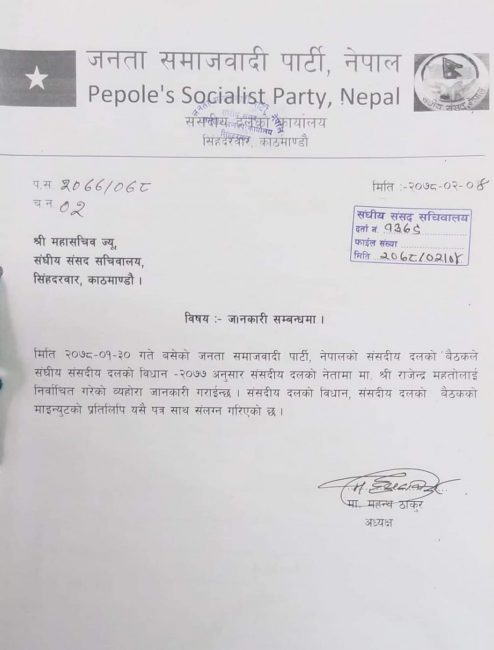 जनता समाजवादी पार्टी, नेपाल
Pepole's Socialist Party, Nepal
संसदीय दलको कार्यालय
सिंहदरवार, काठमाण्डौ
प.स. २०७७/०७८
च न. ०२
मिति :-२०७८-०२-०४
संघीय संसद सचिवालय
दर्ता नं.
फाईल संख्या
मिति २०७८/०२/०४
श्री महासचिव ज्यू,
संघीय संसद सचिवालय,
सिंहदरवार, काठमाण्डौ ।
विषय :- जानकारी सम्बन्धमा ।
मिति २०७८-०१-३० गते बसेको जनता समाजवादी पार्टी, नेपालको संसदीय दलको बैठकले
संघीय संसदीय दलको विधान -२०७७ अनुसार संसदीय दलको नेतामा मा. श्री राजेन्द्र महतोलाई
निर्वाचित गरेको व्यहोरा जानकारी गराईन्छ । संसदीय दलको विधान, संसदीय दलको बैठकको
माइन्युटको प्रतिलिपि यसै पत्र साथ संलग्न गरिएको छ ।
मा. महन्थ ठाकुर
अध्यक्ष